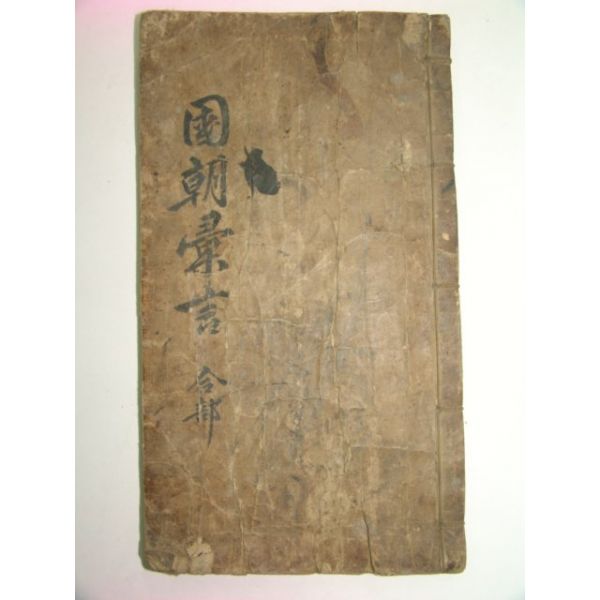 國朝彙言
合部